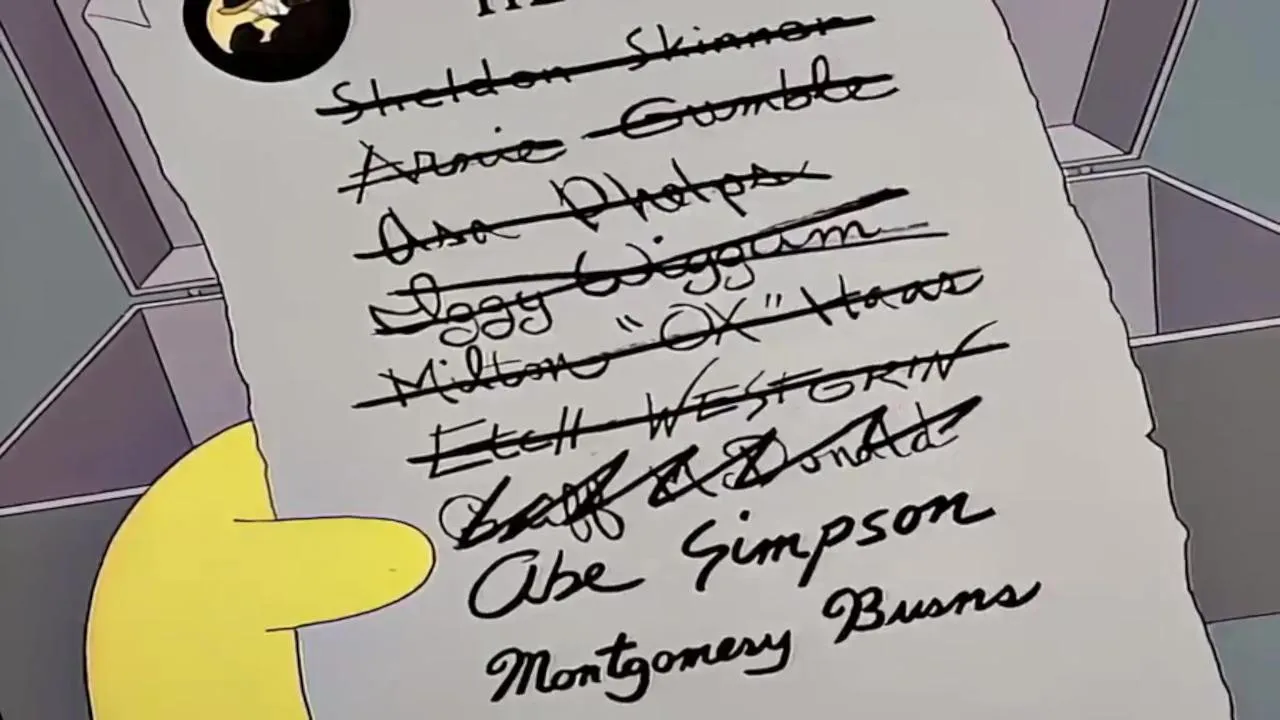 Sheldon Skinner
Arnie Gumble
Asa Phelps
Iggy Wiggum
Milton "OX" Haas
Etch WESTGRIN
Griff McDonald
Abe Simpson
Montgomery Burns